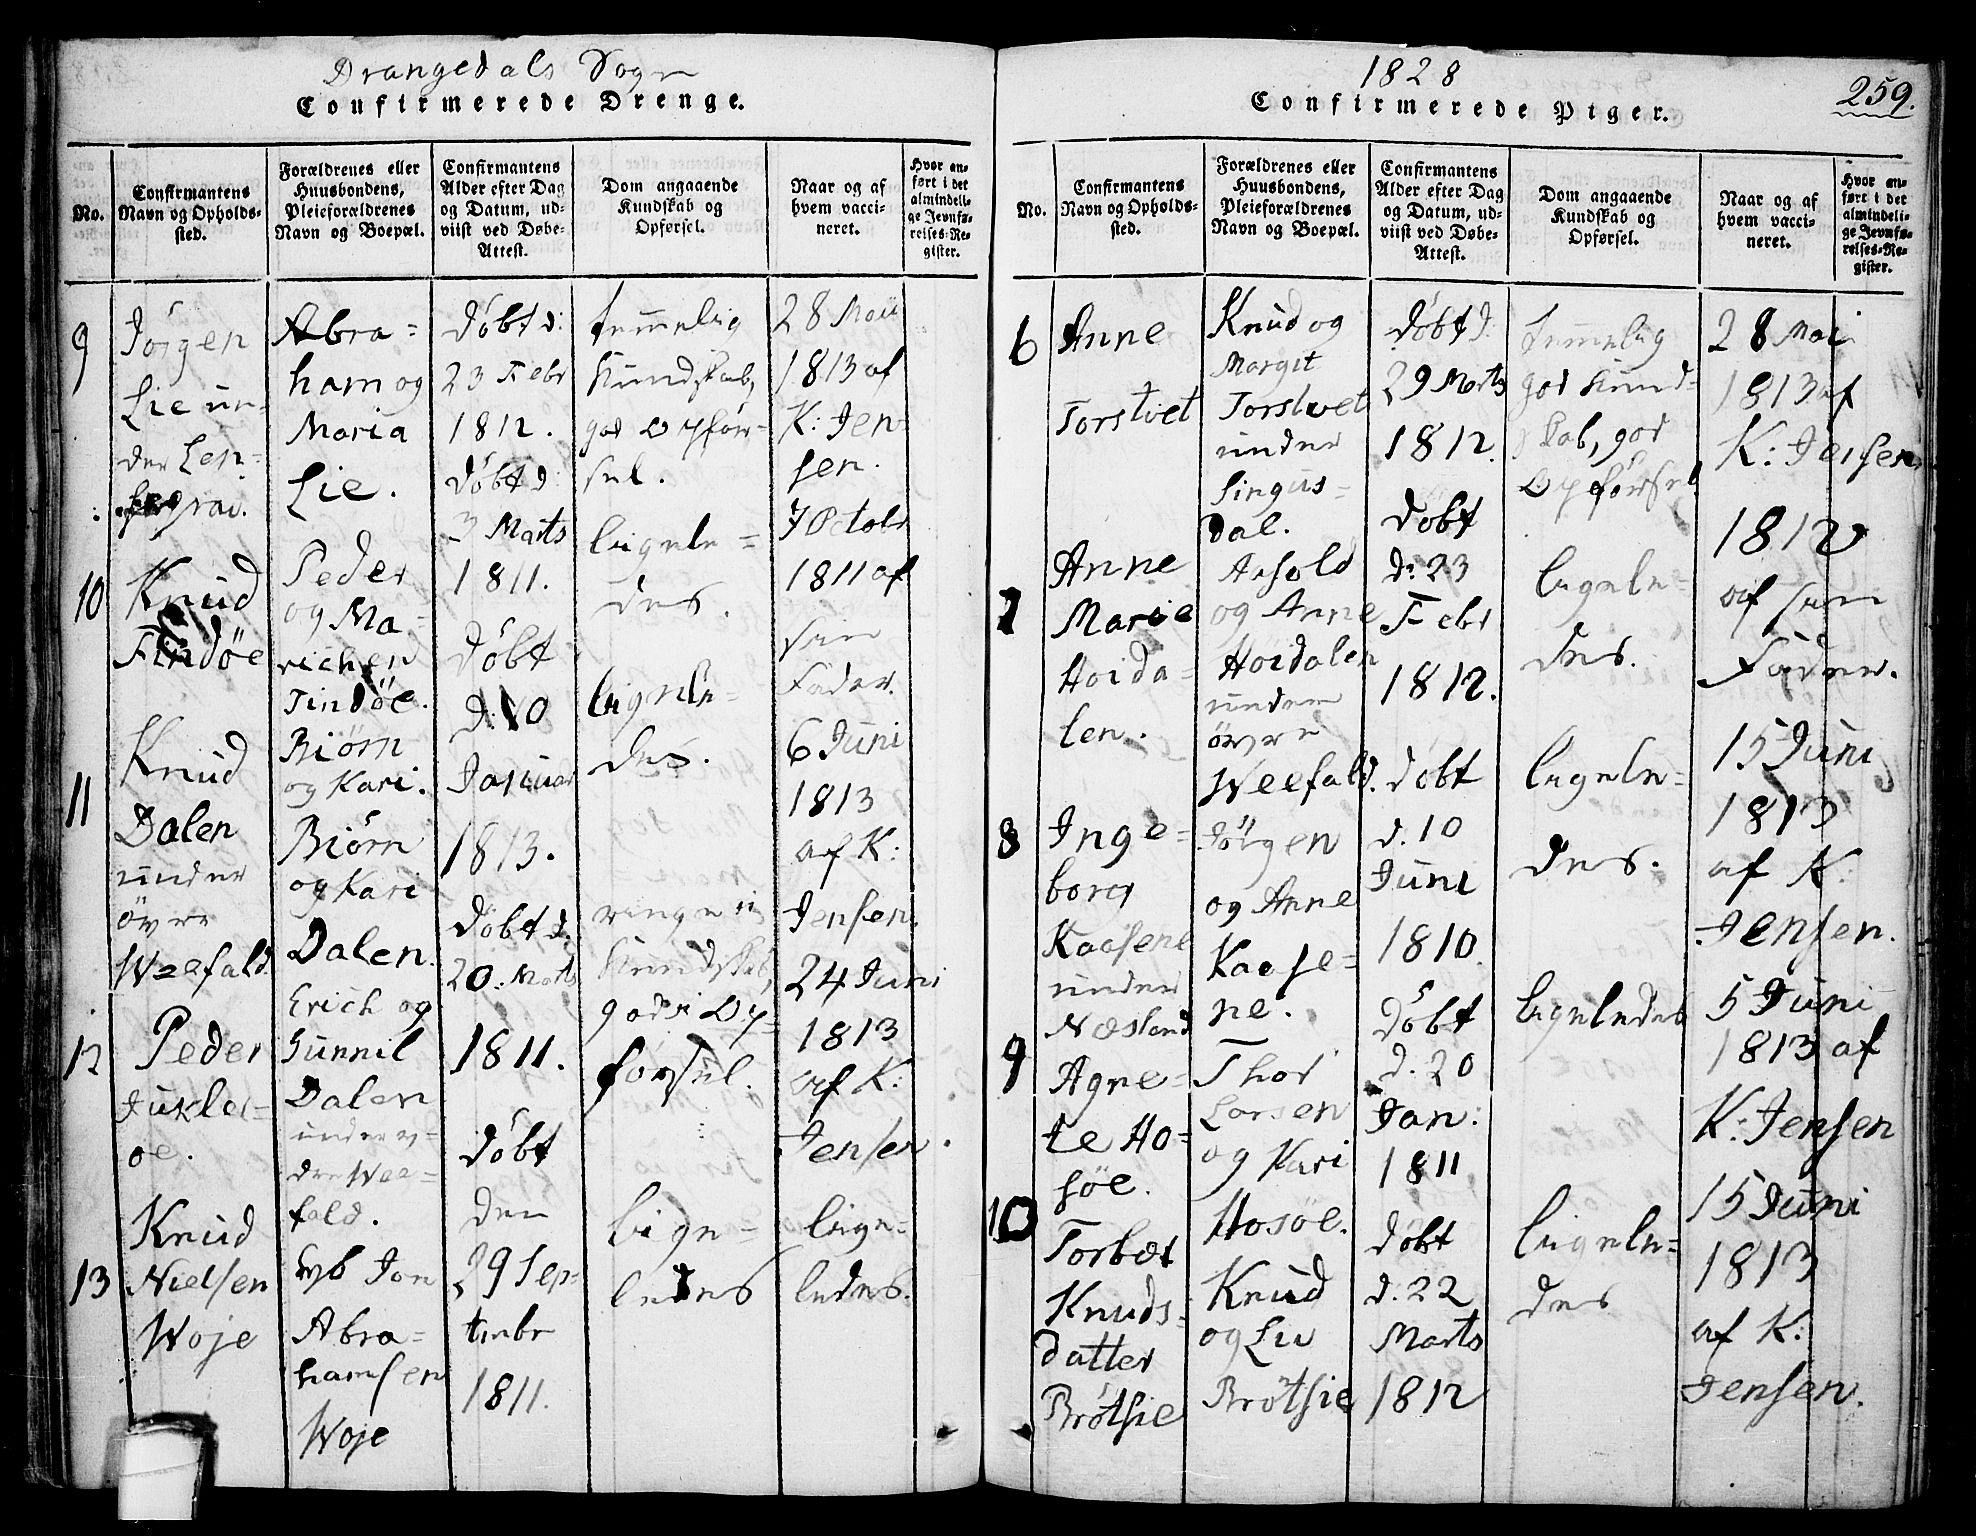 Drangedals Sogn
Confirmerede Drenge.
No.
Confirmantens
Navn og Opholds-
sted.
Forældrenes eller
Huusbondens,
Pleieforældrenes
Navn og Boepæl.
Confirmantens
Alder efter Dag
og Datum, ud-
viist ved Døbe-
Attest.
Dom angaaende
Kundskab og
Opførsel.
Naar og af
hvem vacci-
neret.
Hvor an-
ført i det
almindeli-
ge Jevnfø-
relses-Re-
gister.
9
Jörgen
Lie un-
der
Abra=
ham og
Maria
Lie.
Döbt d:
23 Febr
1812.
temmelig
Kundskab,
god Opför-
sel.
28 Maii
1813 af
K: Jen
sen.
10
Knud
Tindöe
Peder
og Ma-
richen
Tindöe.
Döbt d
3 Marts
1811.
ligele=
des.
7 Octobr
1811 af
sin
Fader.
11
Knud
Dalen
under
övre
Weefald
Biörn
og Kari.
Biörn
og Kari
Dalen.
Döbt
Januar
1813.
ligele-
des.
6 Juni
1813
af K:
Jensen.
12
Peder
Jukler=
oe.
Erich og
Gunnil
Dalen
under y=
dre Wee=
fald.
Döbt d.
20. Marts
1811.
Kundskab,
Op-
försel.
24 Juni
1813
af K:
Jensen.
13
Knud
Nielsen
Woje
Jon
Abra=
hamsen
Woje
Döbt
den
29 Sep=
tembr
1811.
lige=
ledes
lige=
ledes.
1828
259.
Confirmerede Piger.
No.
Confirmantens
Navn og Opholds-
sted.
Forældrenes eller
Huusbondens,
Pleieforældrenes
Navn og Boepæl.
Confirmantens
Alder efter Dag
og Datum, ud-
viist ved Døbe-
Attest.
Dom angaaende
Kundskab og
Opførsel.
Naar og af
hvem vacci-
neret.
Hvor an-
ført i det
almindeli-
ge Jevnfø-
relses-Re-
gister.
6
Anne
Torstvet
Knud og
Margit
Torstvet
under
Singus=
dal.
Döbt d:
29 Marts
1812.
temmelig
god Kund-
skab, god
Opförsel
28 Mai
1813 af
K: Jensen
7
Anne
Marie
Hoida=
len.
og Anne
Hoidalen
under
övre
Weefald.
Döbt
d. 23
Febr
1812.
ligele=
des.
1812
af sin
Fader.
8
Inge=
borg
Kaasene
under
Næsland
Jörgen
og Anne
Kaase=
ne.
Döbt
d. 10
Juni
1810.
ligele=
des.
15 Juni
1813
af K:
Jensen.
9
Agne=
te Ho=
söe.
Thor
Larsen
og Kari
Hosöe.
Döbt
d. 20
Jan:
1811
ligeledes
5 Juni
1813 af
K: Jensen
10
Torbet
Knuds=
datter
Brötsie
Knud
og Liv
Brötsie
Döbt
d. 22
Marts
1812
ligele=
des
15 Juni
1813
af K:
Jensen.